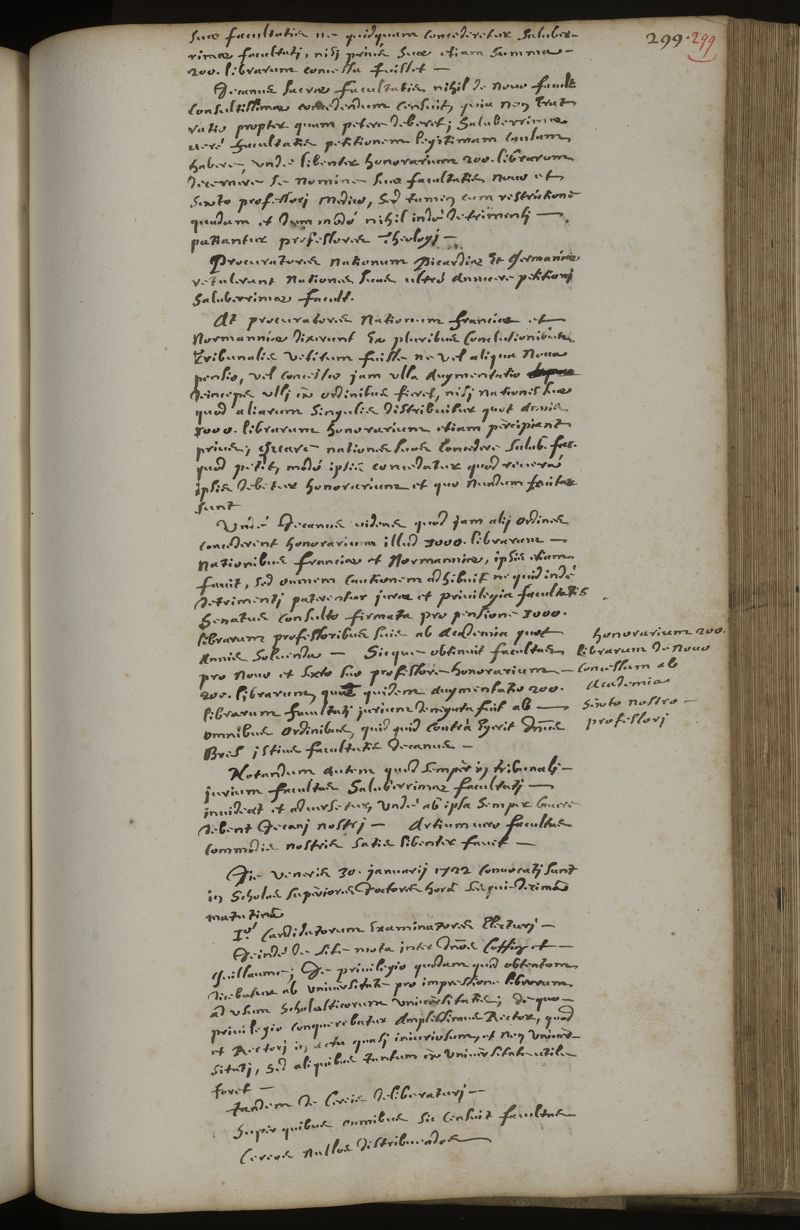 299. 299
suæ facultatis ne quidquam concederetur Saluber-
rimæ facultati, nisi prius suæ etiam summa -
200. librarum concessa fuisset -
Decanus sacræ facultatis nihil de novo facult.
Consultissimæ concedendum censuit, quia non erat
ratio propter quam petere deberet; Saluberrimæ
verò facultatis petitionem legitimam causam
habere, undè libenter honorarium 200. librarum
decernere se nomine suæ facultatis novo et
sexto professori Medico, sed tamen cum restrictione
quadam et dum modò nihil indè detrimenti -
patiantur professores Theologi -
Procuratores Nationum Picardiæ Et Germaniæ
retulerunt Nationes suas ultrò annuere petitioni
Saluberrimæ facult.
At procuratores Nationum franciæ et
Normanniæ dixerunt Ex pluribus Conclusionibus
Tribunalis vetitum fuisse ne vel aliqua Nova
pensio, vel concessæ jam ulla augmentatio
deinceps ulli ex ordinibus fieret, nisi nationes suæ
quod aliarum singulis distribuitur quot annis
1000. librarum honorarium etiam percipiant
prius; Quare nationes suas Concedere salub. fac.
quod petit, modò ipsis concedatur quod reverà
ipsis debetur honorarium et quo nundum fruitæ
sunt
Undè Decanus videns quod jam alij ordines
concederent honorarium illud 1000. librarum -
Nationibus franciæ et Normanniæ, ipsis etiam
favit, sed omnem cautionem adhibuit ne quid indè
detrimenti paterentur jura et privilegia facultatis
Senatus consulto firmata pro pensione 1000.
librarum professoribus suis ab Academia quot
Annis solvenda - Sicque obtinuit facultas
pro novo et sexto suo professore honorarium -
200. librarum, quæ quidem augmentatio 200.
librarum facultati jurium denegata fuit ab -
omnibus ordinibus, quid quid contrà Egerit Dnus
Bres istius facultatis Decanus -
honorarium 200.
librarum de novo
concessum ab
Academia
sexto nostro -
professori
Notandum autem quod semper in tribunali -
jurium facultas Saluberrimæ facultati -
invideat et adversetur, undè ab ipsa semper cavere
debent Decani nostri - Artium vero facultas
commodis nostris satis libenter favet -
Die veneris 30. januarij 1722 convocati sunt
in Scholas superiores Doctores horâ sesqui-decimâ
matutinâ
1o. Candidatorum Examinatores Electuri -
Deindè de lite mota inter Dnos Coffin et -
Guillaume; De privilegio quodam quod obtentum
dicebatur ab Universitate pro impressione librorum
ad usum Scholasticorum Universitatis; de quo -
privilegio conquerebatur Amplissimus Rector, quod
et Rectori in actu quasi injuriosum, et non Univer-
sitati, sed aliquibus tantum ex Universitate utile
foret -
tandem de Cereis deliberaturi -
super quibus omnibus sic censuit facultas
Cereos nullos distribuendos -